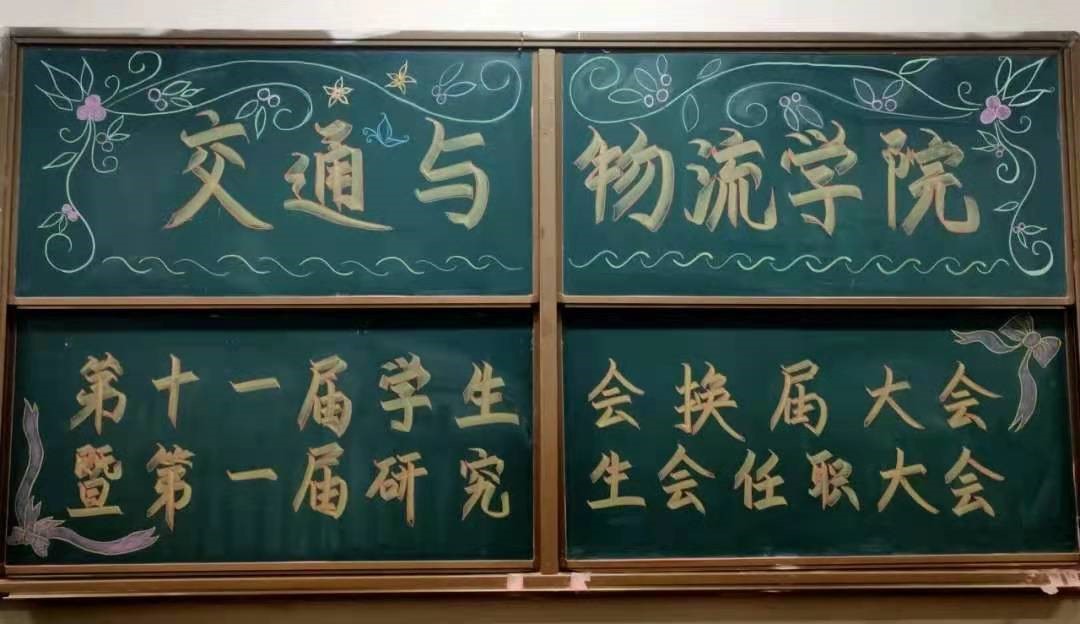 交通与物流学院
第十一届学生会换届大会
暨第一届研究生会任职大会